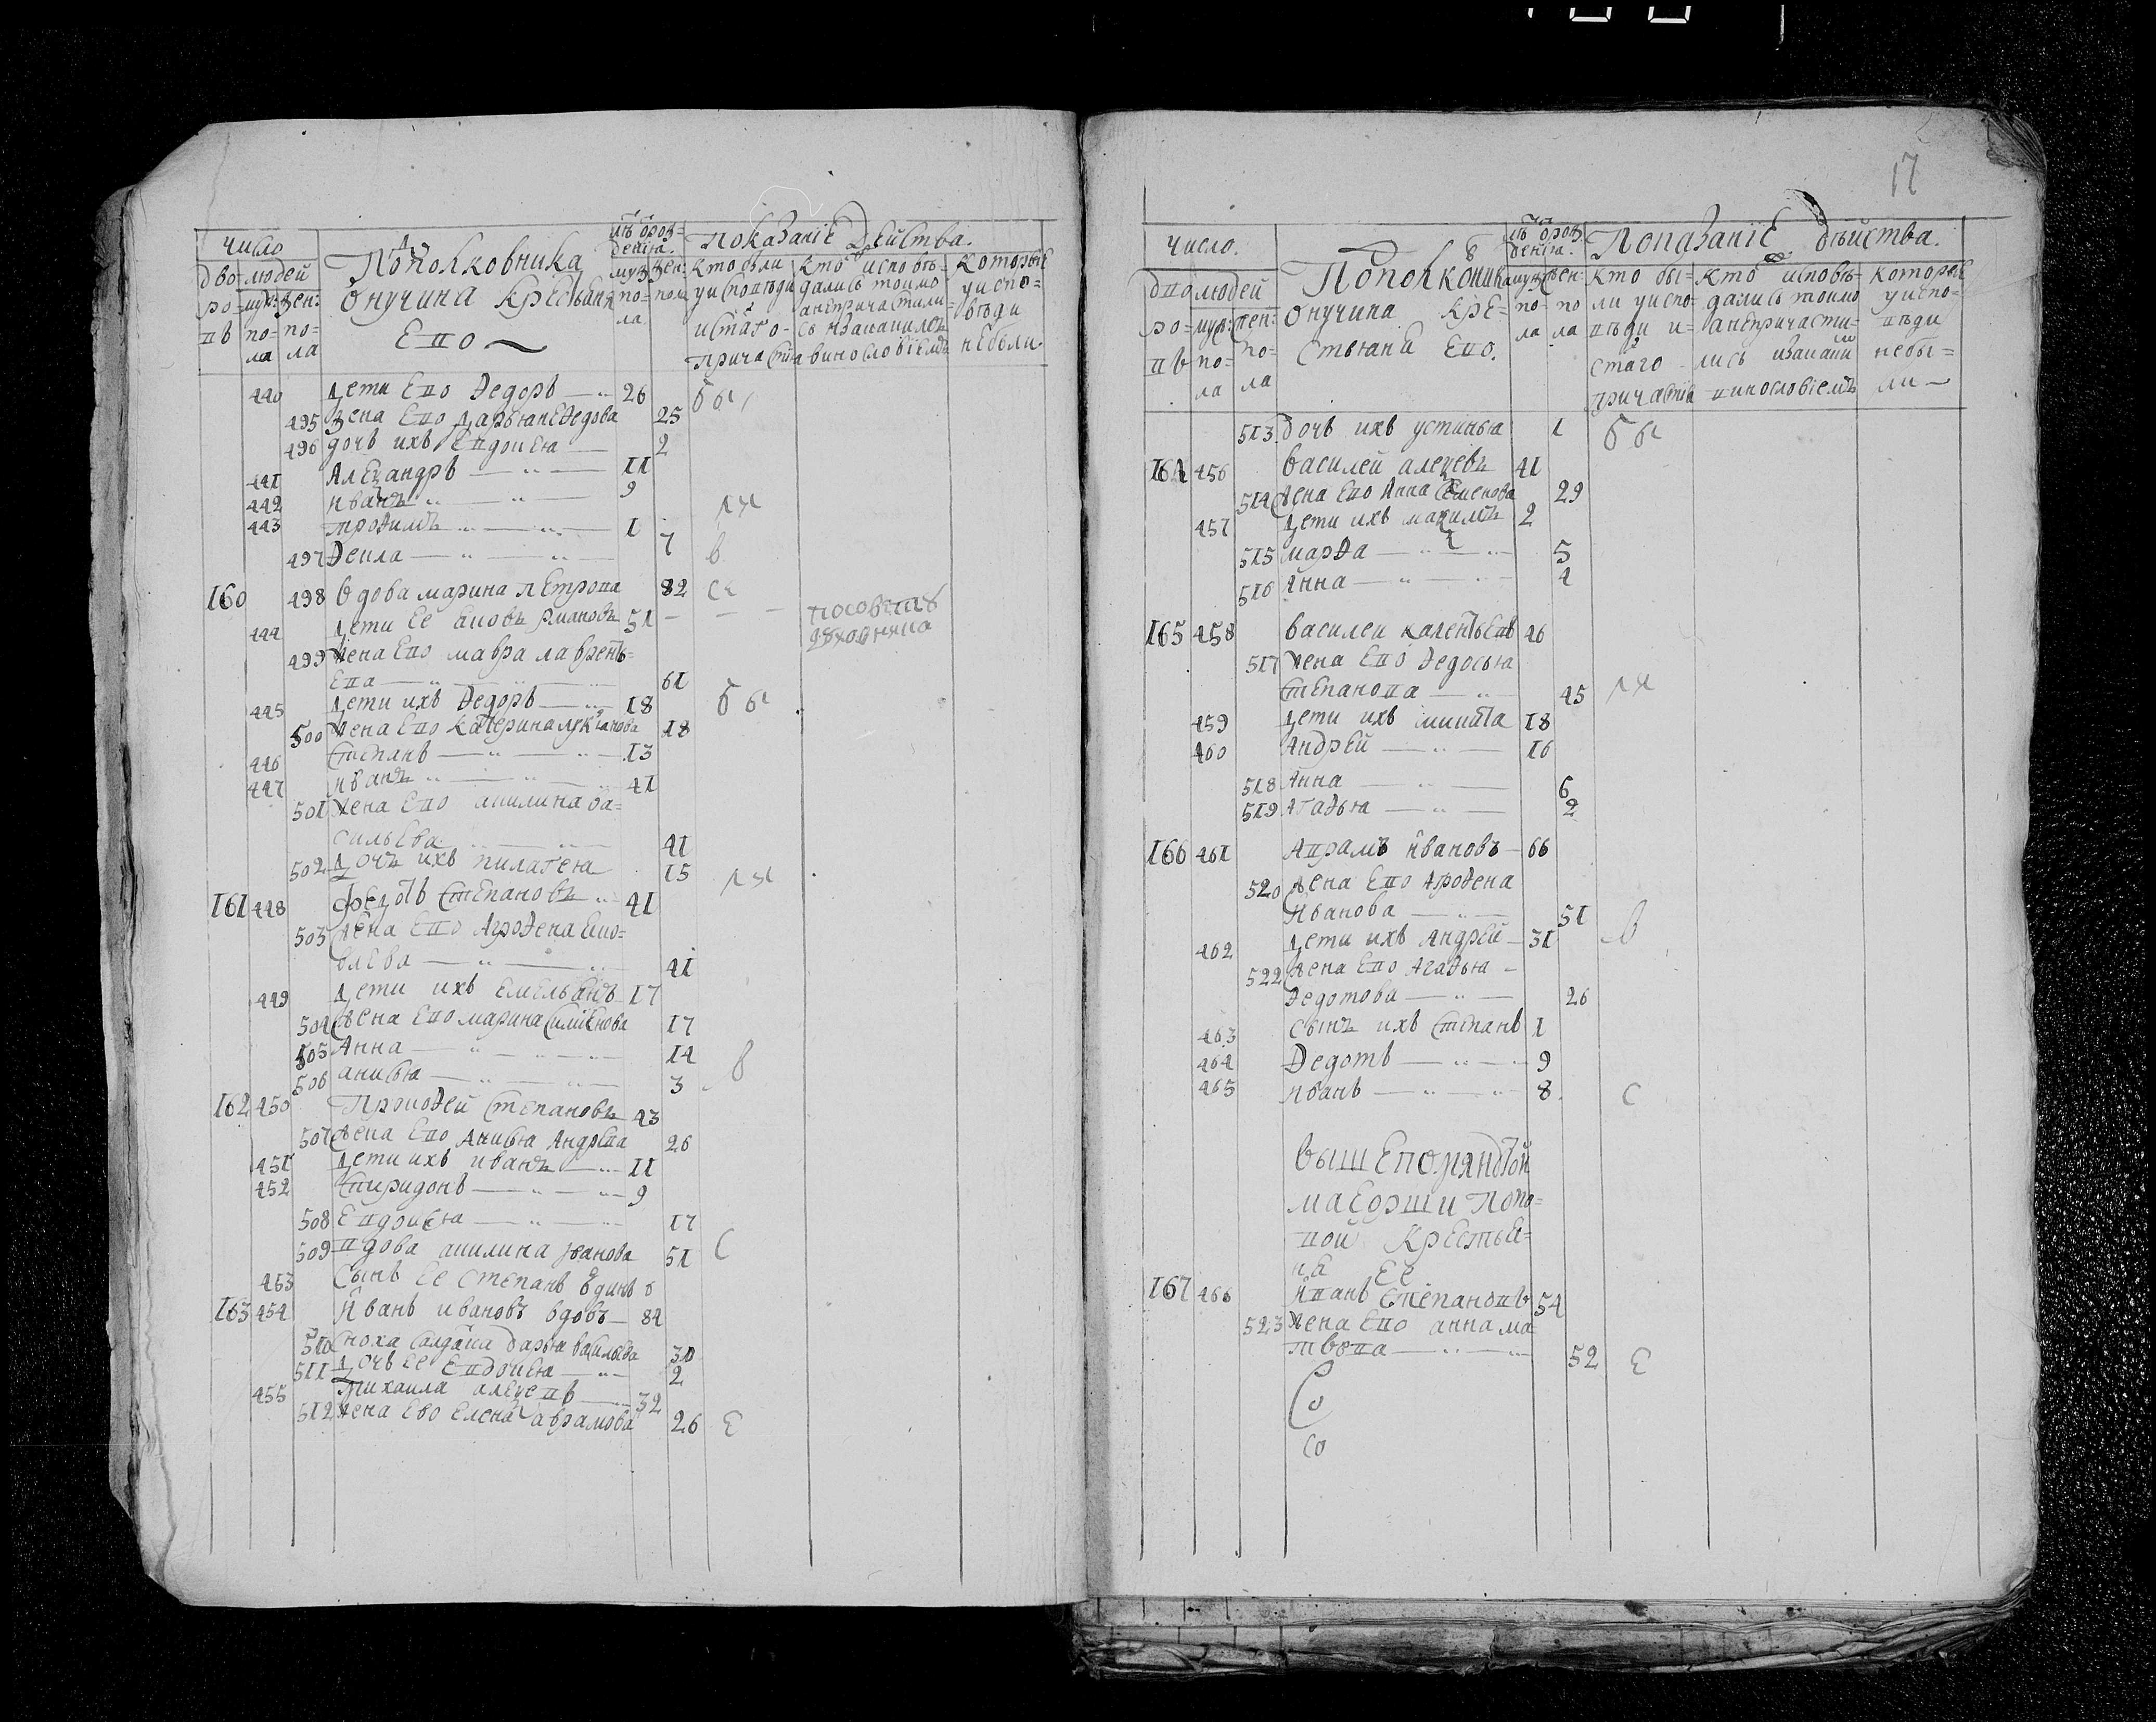 число
дво-
людей
ро-
муж:
жен:
въ
по-
по-
ла
ла
Пополковника
онучина крестьяня
Ево
лѣтъ ѿ рож=
денїя.
муж
жен:
по=
пола
ла
показанїе Действа.
кто были
уисповѣди
истаго-
причастїа
кто исповѣ-
дались токмо
анепричастили-
сь изкакимъ
винословїемъ
которые
уиспо-
вѣди
небыли.
440 дети Ево Ѳедоръ 26 бы
495 жена Ево дарья неѲедова 25
496 дочь ихъ Евдокея 2
441 Алеѯандръ 11
442 иванъ 9
443 троѲимъ 1 ли
497 Ѳекла 7 в
160 498 вдова марина петрова 82 се
444 дети ее яковъ романовъ 51
499 жена Ево мавра лаврентъ=
ева 61
445 дети ихъ Ѳедоръ 18 бы
500 жена Ево катерина лукїанова 18
446 степанъ 13
447 иванъ 41
501 жена Ево акилина ва=
сильева 41
502 дочъ ихъ пилагея 15 ли
161 448 федотъ степановъ 41
503 жена Ево АгроѲена Яко=
влева 41
449 дети ихъ Емельянъ 17
504 жена Ево марина симїенова 17
505 Анна 14
506 анисья 3 в
162 450 ПрокоѲей степановъ 43
507 жена Ево Анисья Андрева 26
451 дети ихъ иванъ 11
452 спиридонъ 9
508 Евдокея 17
509 вдова акилина иванова 51 с
453 сынъ ее степанъ
163 454 Иванъ ивановъ вдовъ 84
510 сноха салдатка дарья василева 30
511 дочь ее Евдокея 2
455 михаила алеѯевъ 32
512 жена Ево елена аврамова 26 е
17
число.
дво
людей
ро=
муж:
жен:
въ
по-
по=
ла
ла
Пополковника
онучина кре=
стьяня Ево.
лѣтъ ѿ рож
денїя.
муж
жен:
по-
по
ла
ла
Показанїе дѣйства.
кто бы-
ли уиспо-
вѣди и-
стаго
причастїя
кто исповѣ-
дались токмо
анепричасти-
лись изкаким
винословїемъ
которые
уиспо-
вѣди
небы=
ли
513 дочь ихъ устинья 1 бы
164 456 василей алеѯевъ 41
514 жена Ево Анна семенова 29
457 дети ихъ маѯимъ 2
515 марѲа 5
516 Анна 4
165 458 василеи калентьевъ 46
517 жена Ево Ѳедосья
степанова 45 ли
459 дети ихъ никита 18
460 Андрей 16
518 Анна 6
519 АгаѲья 2
166 461 Аврамъ ивановъ 66
520 жена Ево АгроѲена
иванова 51
462 дети ихъ Андрей 31 в
522 жена Ево АгаѲья
Ѳедотова 26
463 сынъ ихъ степанъ 1
464 Ѳедотъ 9
465 иванъ 8 с
вышепомянɣтой
маёрши Попо=
вой крестья=
ня ее
167 466 Иванъ степановъ 54
523 жена Ево анна ма
твева 52 е
Со
со